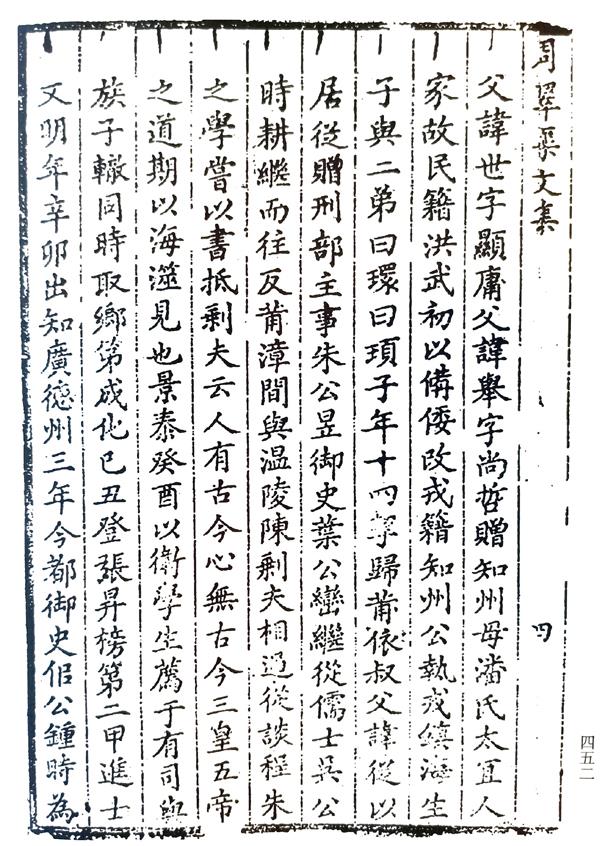 周翠渠文集
四
父諱世字顯庸父諱舉字尚哲贈知州母潘氏太宜人
家故民籍洪武初以備倭改戎籍知州公執戎鎮海生
子與二弟曰環曰頊子年十四挈歸莆依叔父諱從以
居從贈刑部主事朱公昱御史葉公巒繼從儒士吳公
時耕繼而往反莆漳間與温陵陳剩夫相過從談程朱
之學嘗以書抵剩夫云人有古今心無古今三皇五帝
之道期以海澨見也景泰癸酉以衛學生薦于有司與
族子轍同時取鄉第成化己丑登張昇榜第二甲進士
又明年辛卯出知廣德州三年今都御史侶公鍾時為
四五二